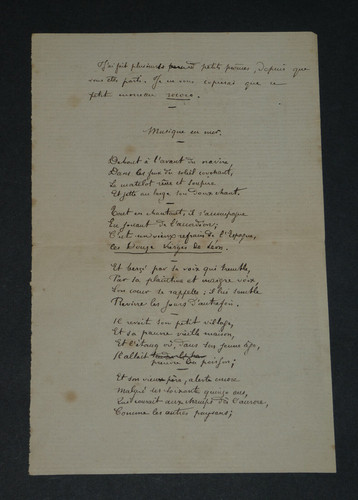 J'ai fait plusieurs petits poèmes, depuis que
vous êtes parti. Je ne vous copierai que ce
petit morceau
Musique en mer.
Debout à l'avant du navire,
Dans les feux du soleil couchant,
Le matelot rêve et soupire
Et jette au large son doux chant.
Tout en chantant, il s'accompagne
En jouant de l'accordéon;
C'est un vieux refrain de l'Espagne,
les Douze vierges de Léon.
Et bercé par sa voix qui tremble,
Par sa plaintive et maigre voix,
Son coeur se rappelle; il lui semble
Revivre les jours d'autrefois.
Il revoit son petit village,
Et sa pauvre vieille maison,
Et l'étang où, dans son jeune âge,
Il allait
prendre du poisson;
Et son vieux père, alerte encore
Malgré ses soixante quinze ans,
Qui courait aux champs dès l'aurore,
Comme les autres paysans;